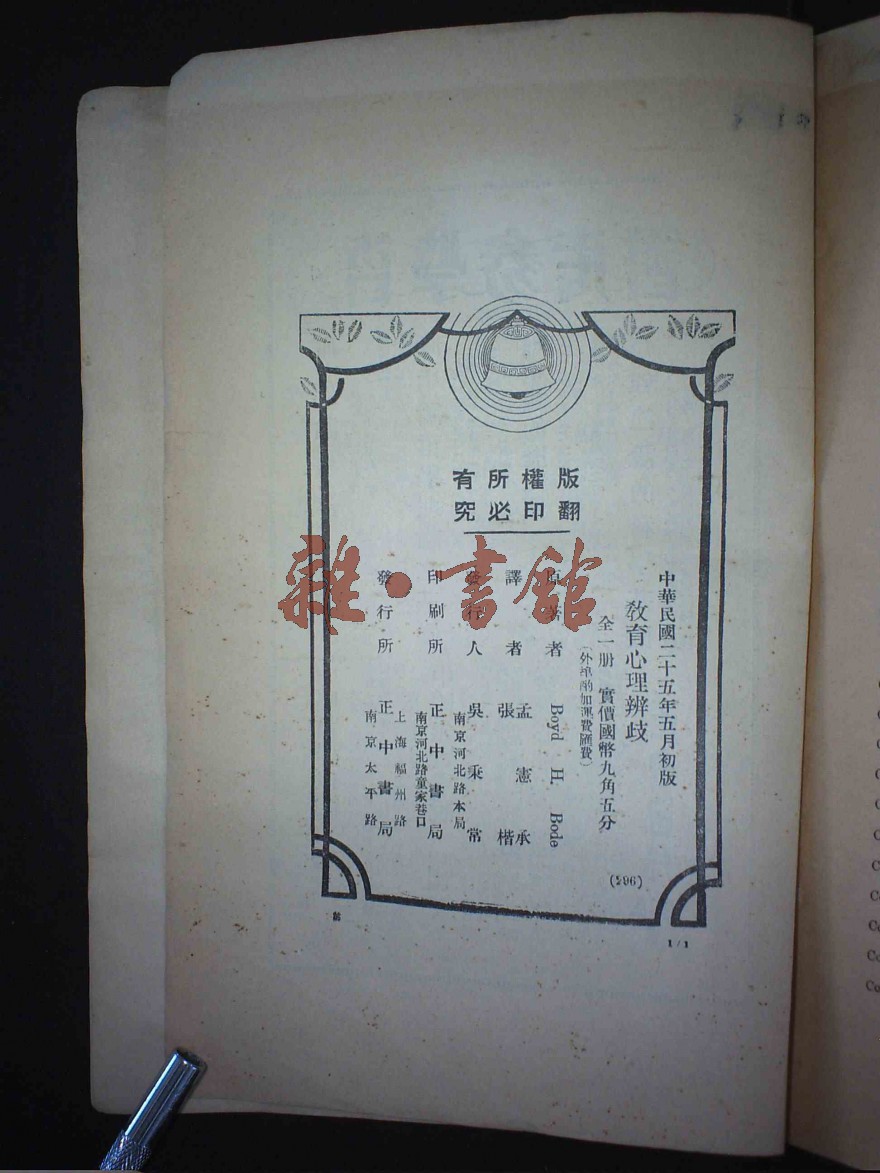 版權所有
翻印必究
中華民國二十五年五月初版
教育心理辨歧
全一册 實價國幣九角五分
(外埠酌加運費匯費)
原著者 Boyd H. Bode
譯者 孟憲承 張楷
發行人 吳秉常
南京河北路本局
印刷所 正中書局
南京河北路童家巷口
發行所 正中書局
上海福州路
南京太平路
(596)
1/1
雜·書館